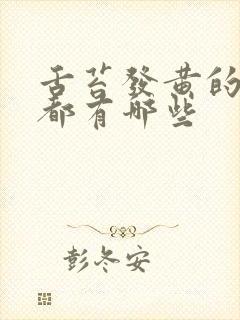 舌苔發黄的
都有哪些
彭冬安